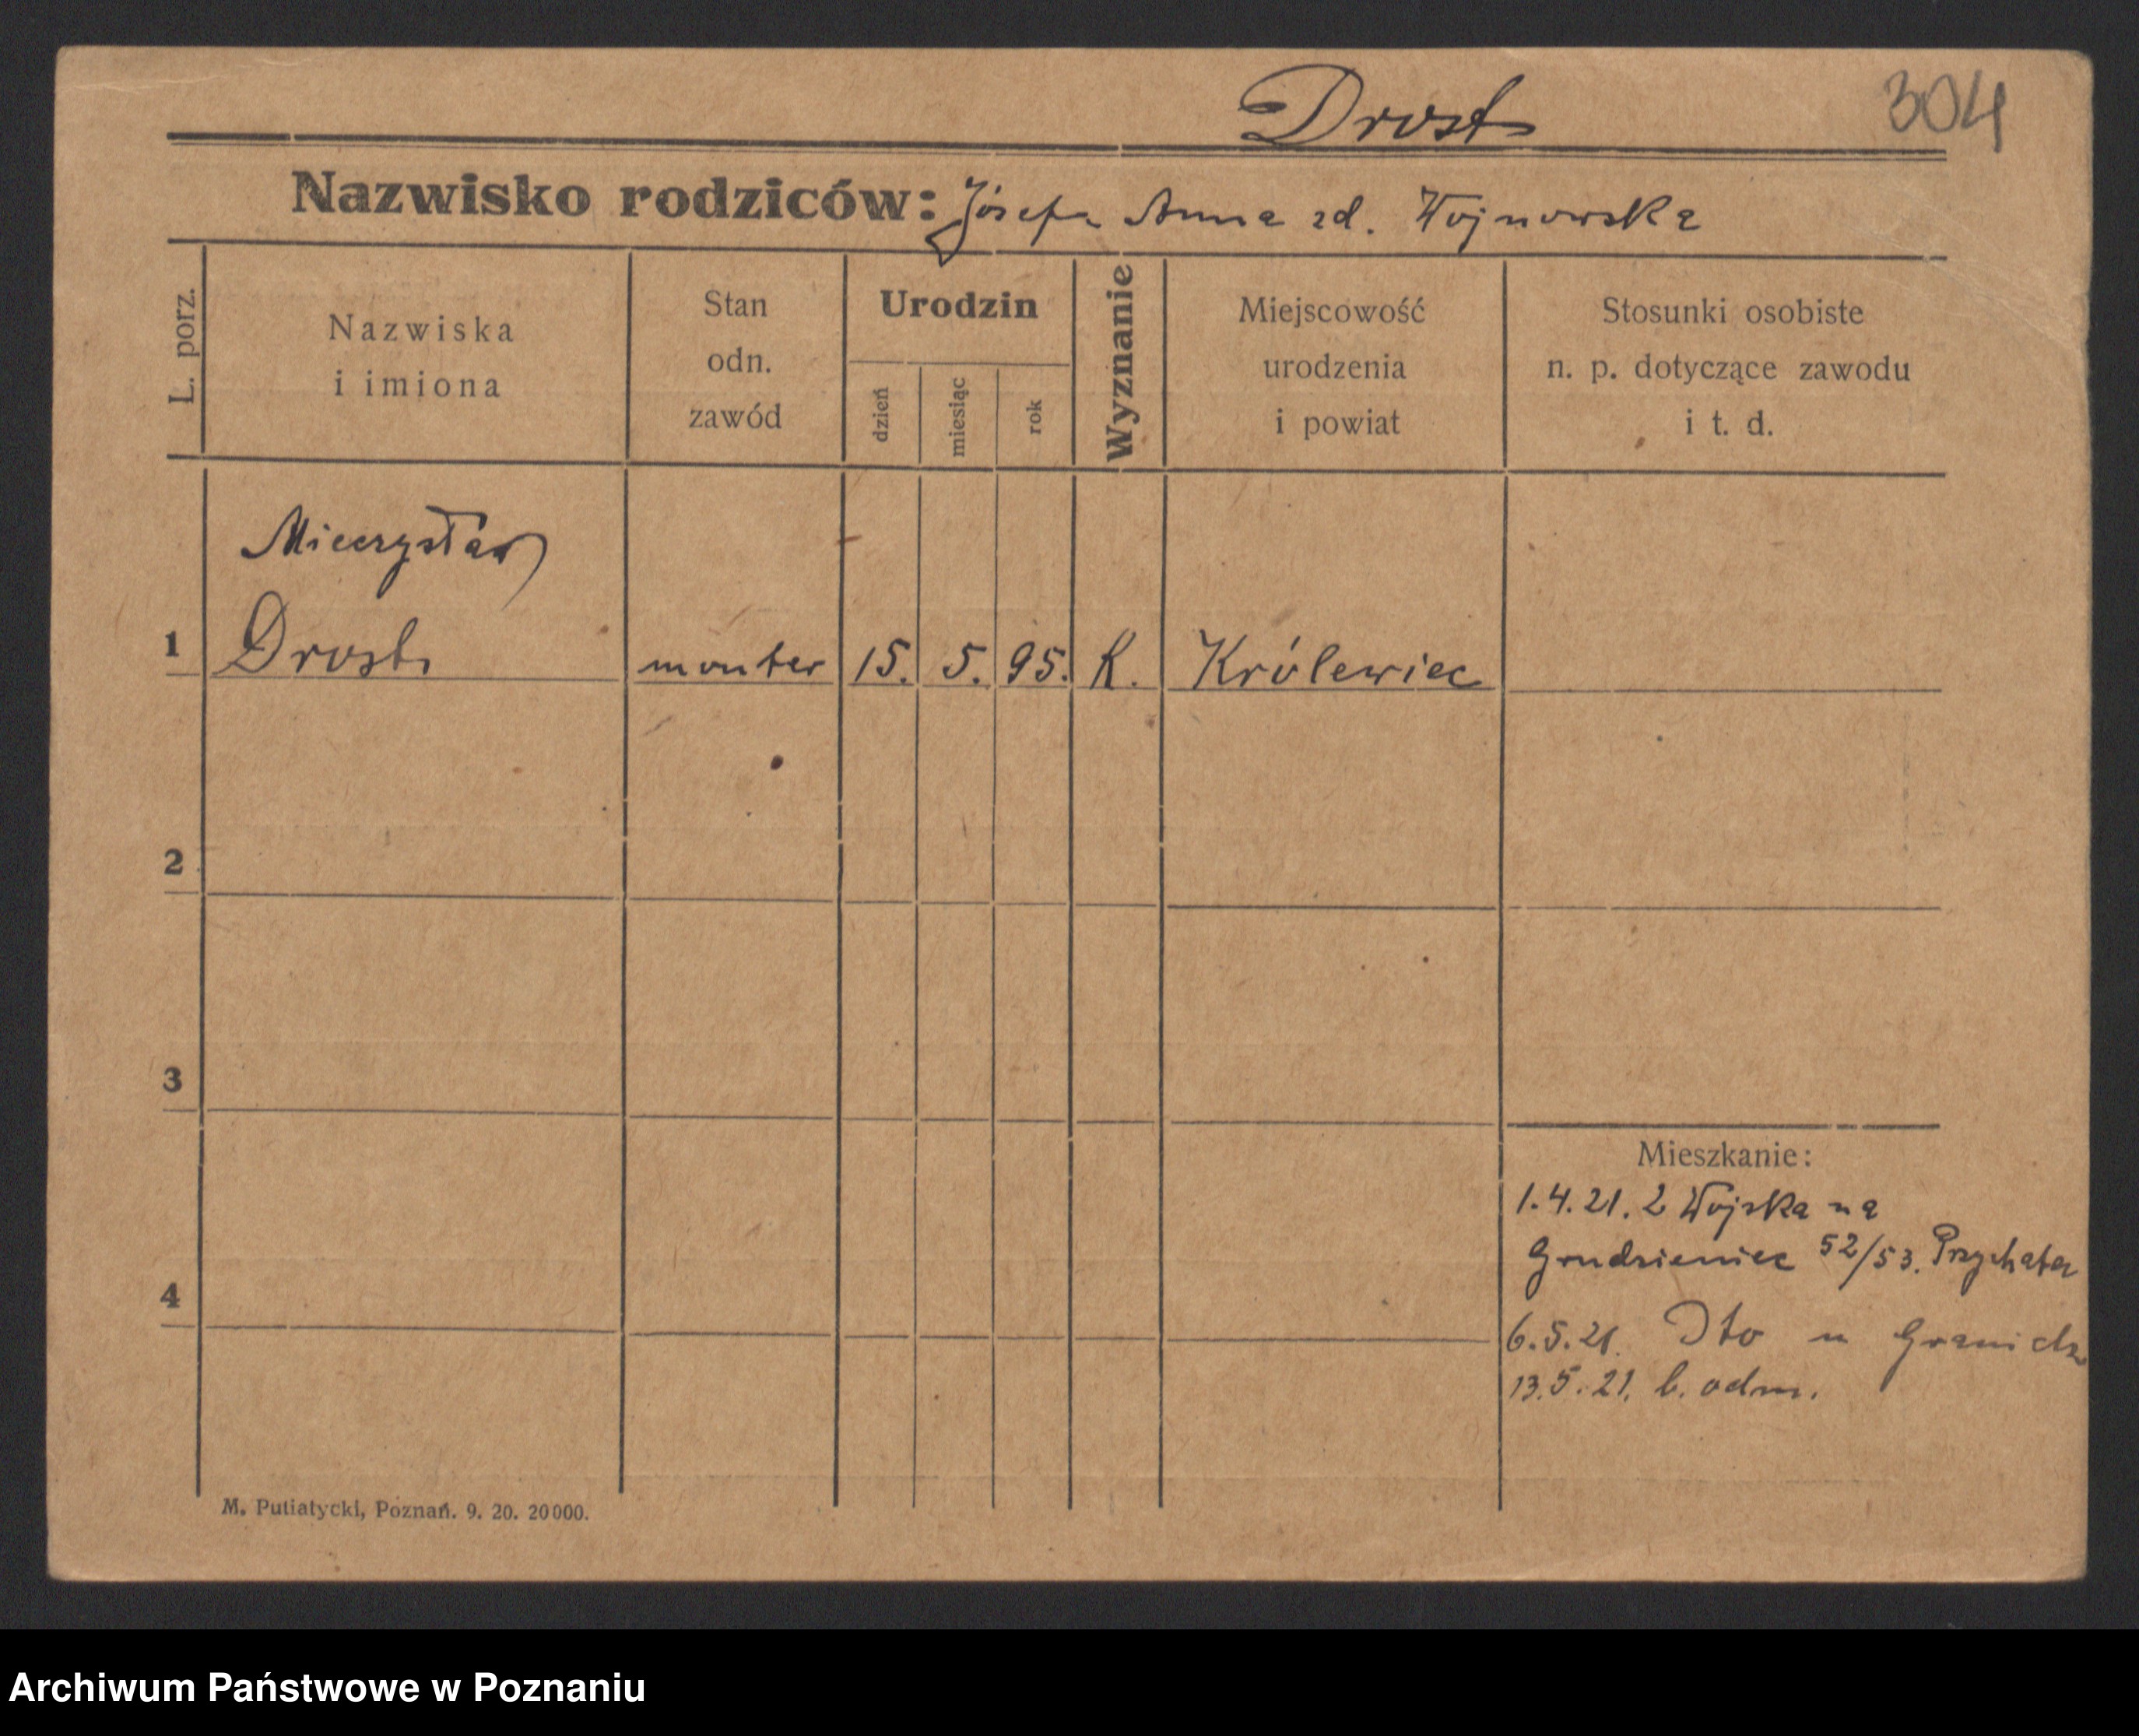 Drost 304
Nazwisko rodziców: Józefa Anna zd. Wojnowska
L. porz.
Nazwiska
i imiona
Stan
odn.
zawód
Urodzin
dzień
miesiąc
rok
Wyznanie
Miejscowość
urodzenia
i powiat
Stosunki osobiste
n. p. dotyczące zawodu
i t. d.
Mieczysław
1 Drost monter 15. 5. 95. K. Królewiec
2
3
Mieszkanie:
1.4.21. z Wojska na
Grudzieniec 52/53.
4
6.5.21. Dto u
13.5.21. b. odm.
M. Putiatycki, Poznań. 9. 20. 20000.
Archiwum Państwowe w Poznaniu